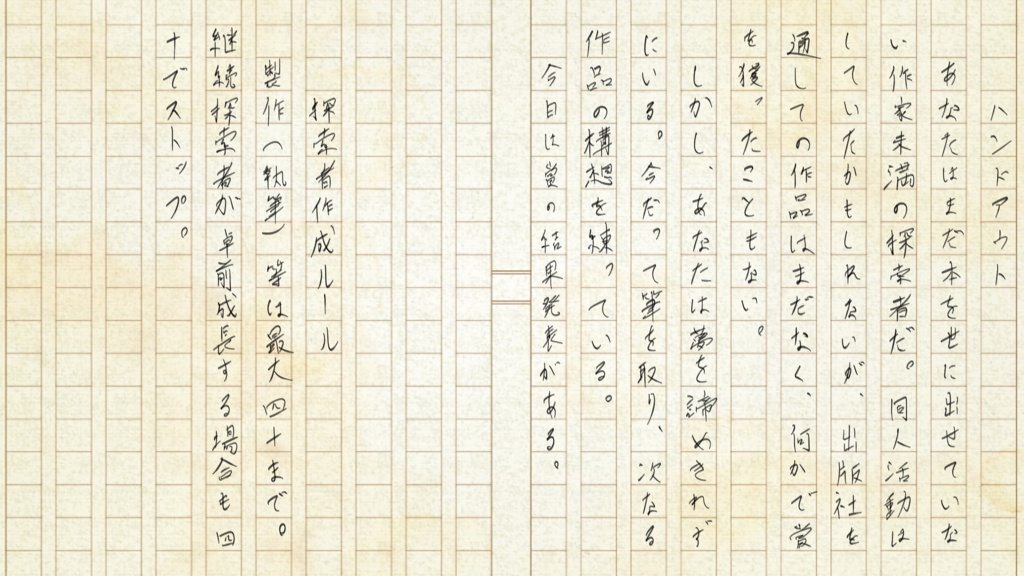 ハンドアウト
あなたはまだ本を世に出せていな
い作家未満の探索者だ。同人活動は
していたかもしれないが、出版社を
通しての作品はまだなく、何かで賞
を獲ったこともない。
しかし、あなたは夢を諦めきれず
にいる。今だって筆を取り、次なる
作品の構想を練っている。
今日は賞の結果発表がある。
探索者作成ルール
製作(執筆)等は最大四十まで。
継続探索者が卓前成長する場合も四
十でストップ。